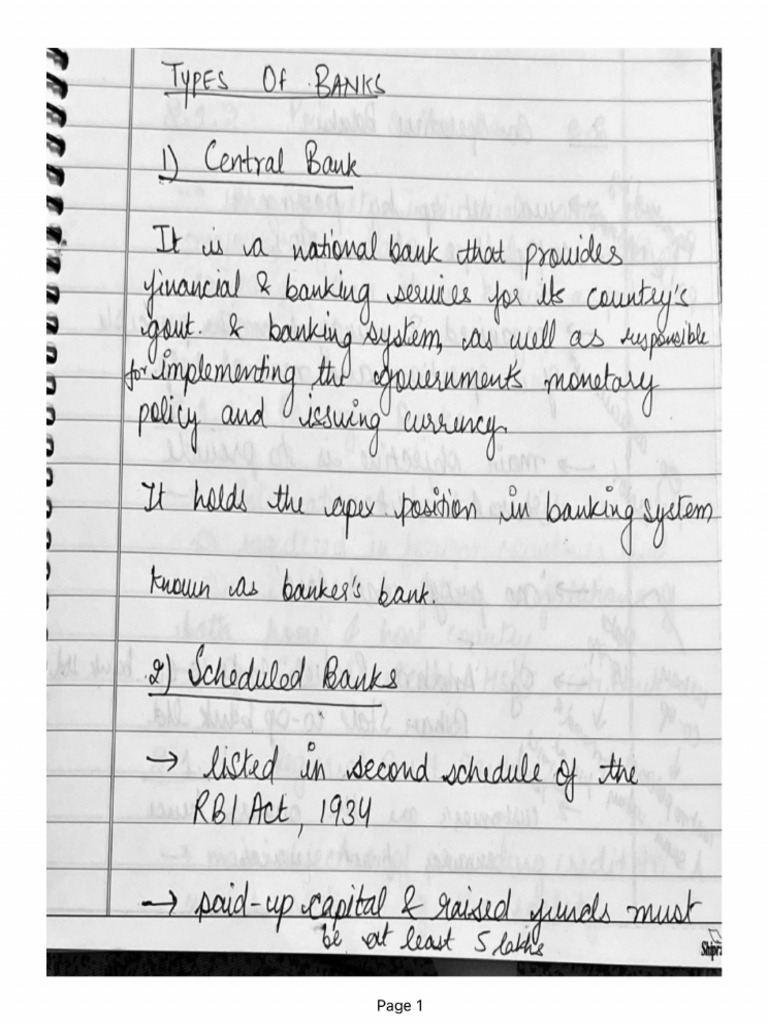 TYPES OF BANKS
1) Central Bank
It is a national bank that provides
financial & banking services for its country's
govt. & banking system, as well as responsible
for implementing the governments monetary
policy and issuing currency.
It holds the apex position in banking system
known as banker's bank.
2) Scheduled Banks
→ listed in second schedule of the
RBI Act, 1934
→ paid-up capital & raised funds must
be at least 5 lakhs
Page 1